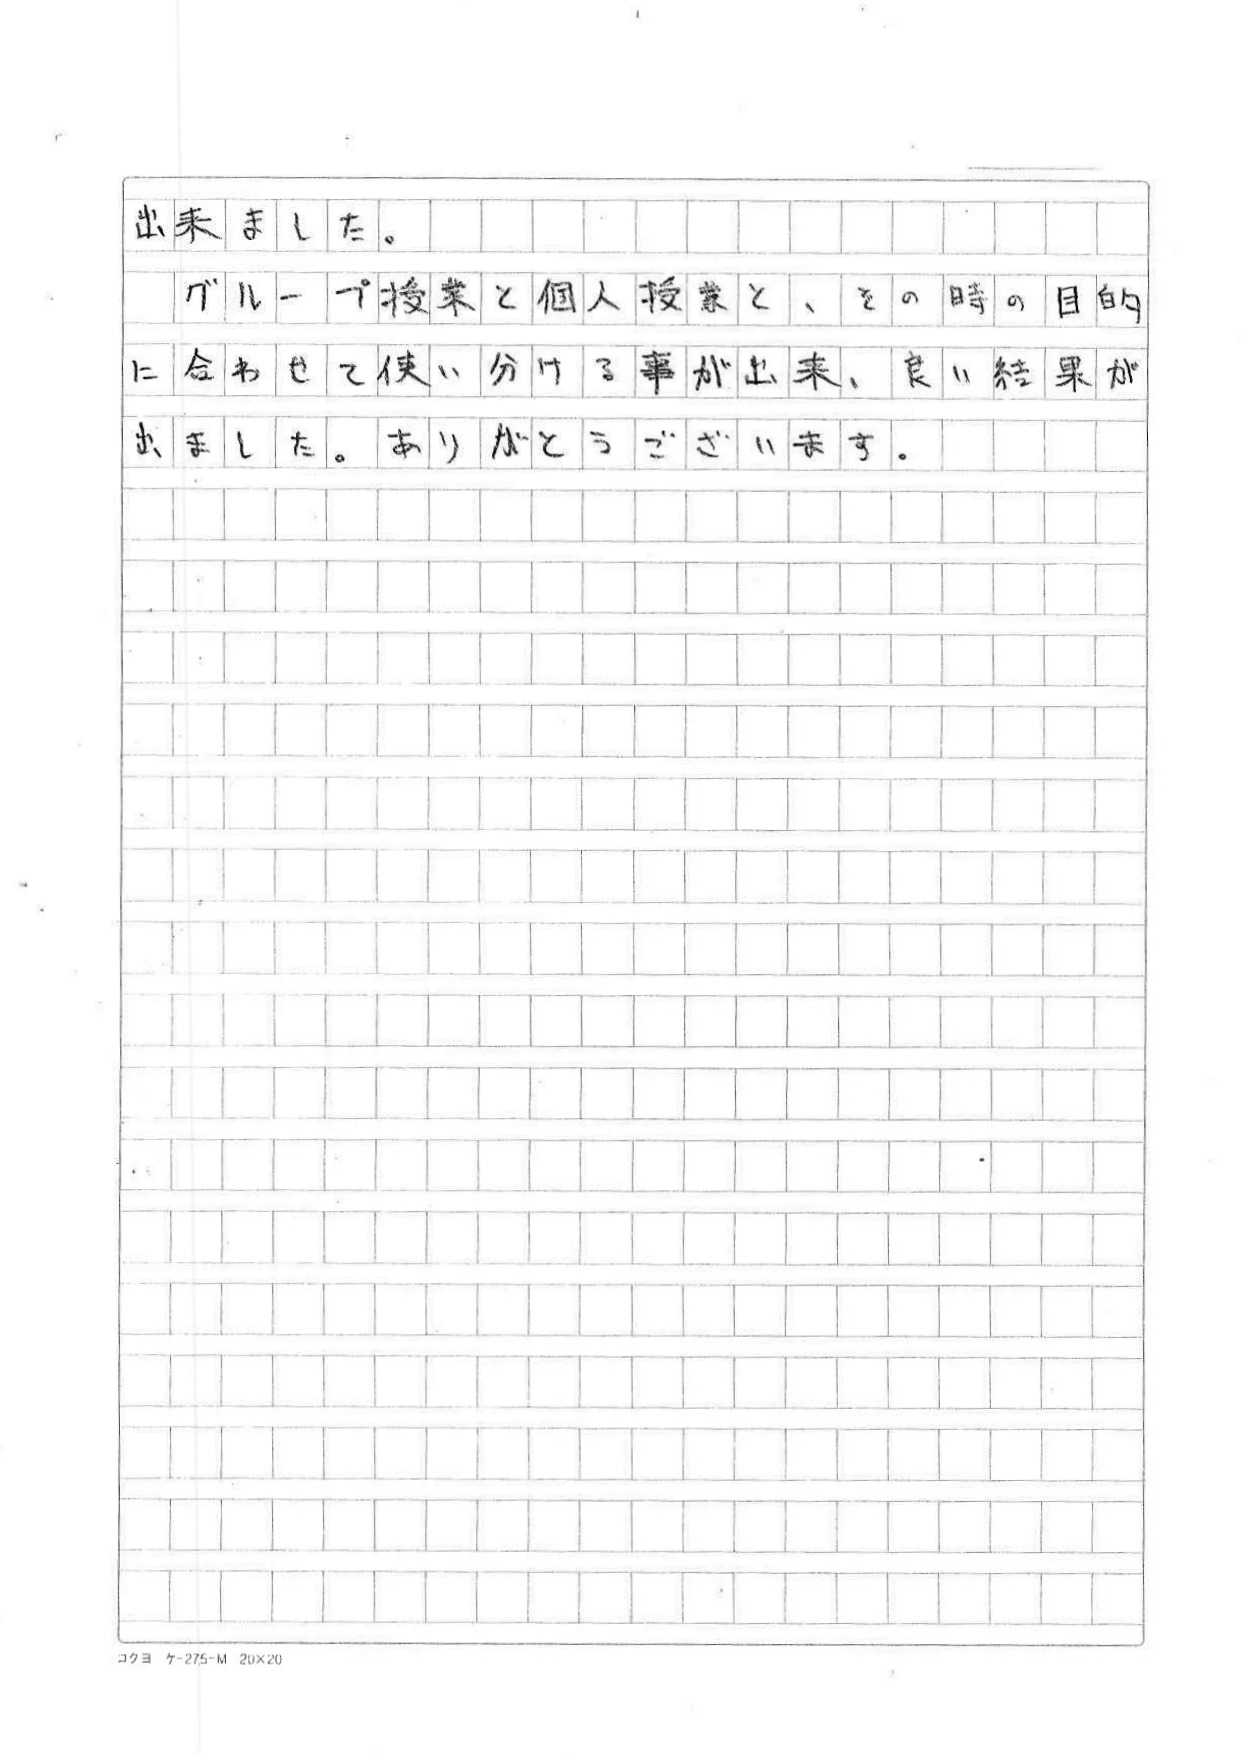 出来ました。
グループ授業と個人授業と、その時の目的
に合わせて使い分ける事が出来、良い結果が
出ました。ありがとうございます。
コクヨ ケ-275-M 20×20